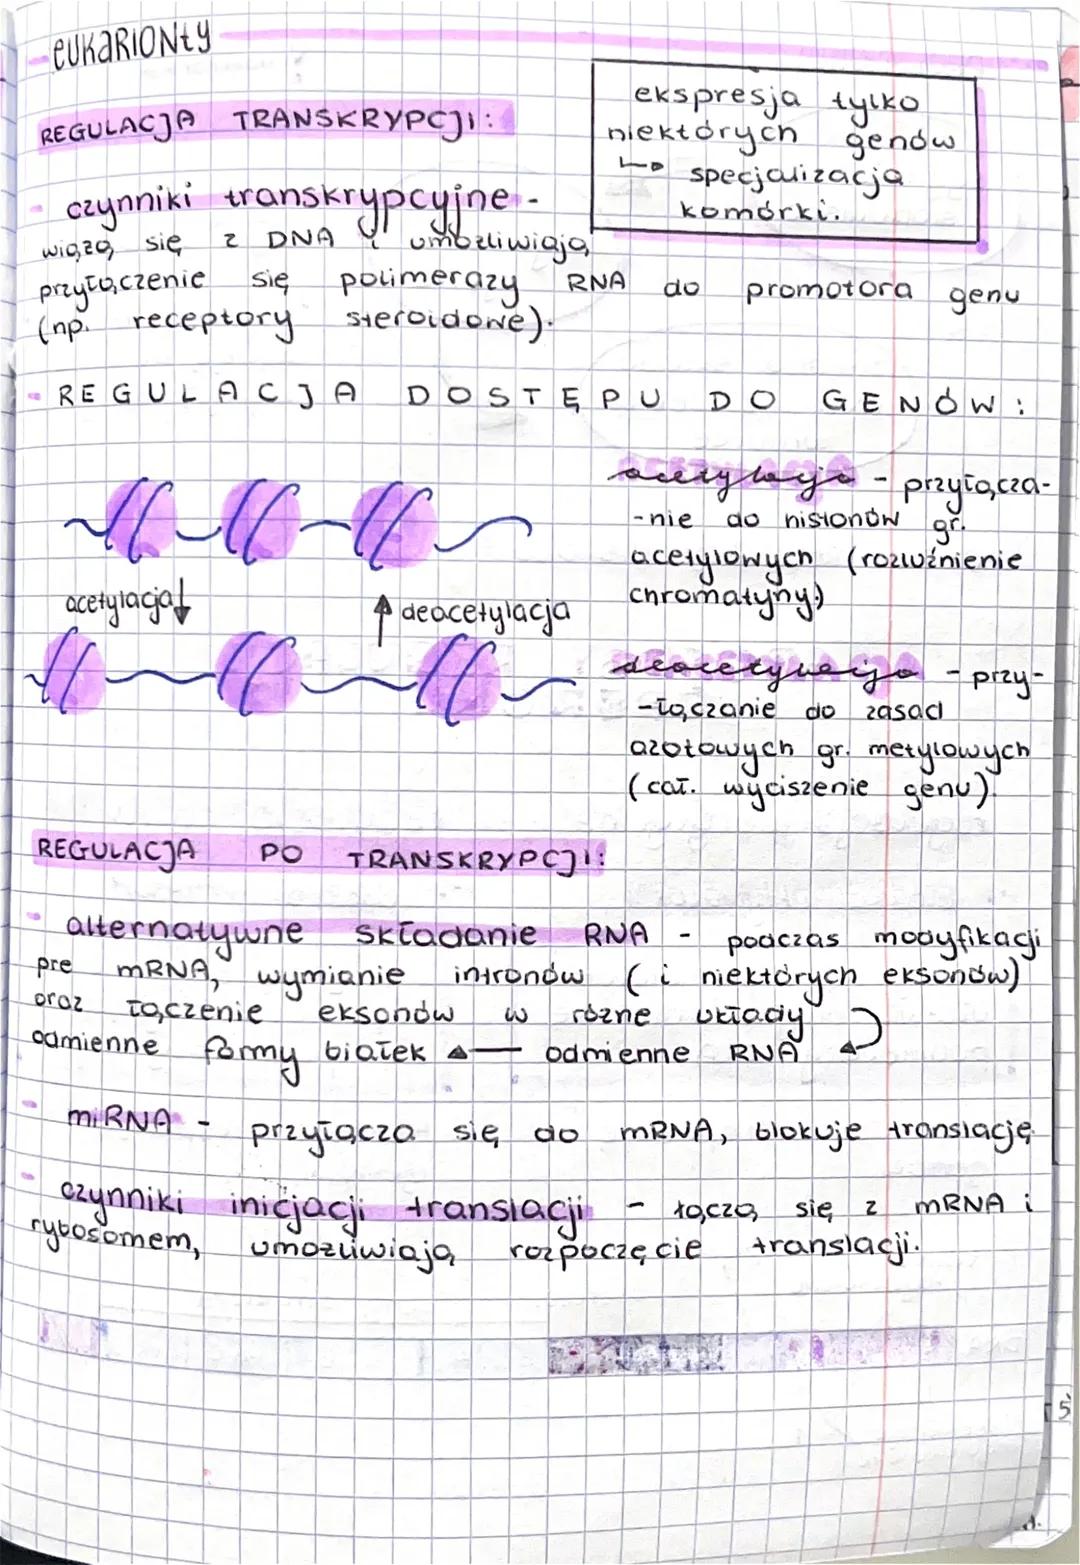 - EUKARIONTY
ekspresja tylko
niektórych genów
↳ specjalizacja
komórki.
REGULACJA TRANSKRYPCJI:
- czynniki transkrypcyjne -
wiążą się z DNA i umożliwiają
przyłączenie się polimerazy RNA do promotora genu
(np. receptory steroidowe).
- REGULACJA DOSTĘPU DO GENÓW:
acetylacja - przyłącza-
-nie do histonów gr.
acetylowych (rozluźnienie
chromatyny)
acetylacja ↓
↑ deacetylacja
deacetylacja - przy-
-łączanie do zasad
azotowych gr. metylowych
(cał. wyciszenie genu).
REGULACJA PO TRANSKRYPCJI:
- alternatywne składanie RNA - podczas modyfikacji
pre mRNA, wymianie intronów (i niektórych eksonów)
oraz łączenie eksonów w różne układy
odmienne formy białek ← odmienne RNA
- miRNA - przyłącza się do mRNA, blokuje translację.
- czynniki inicjacji translacji - łączą się z mRNA i
rybosomem, umożliwiają rozpoczęcie translacji.